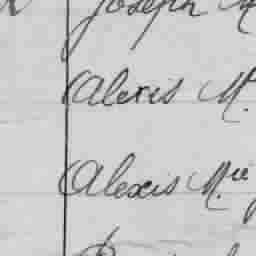 Joseph M
Alexis M.
Alexis M.ie